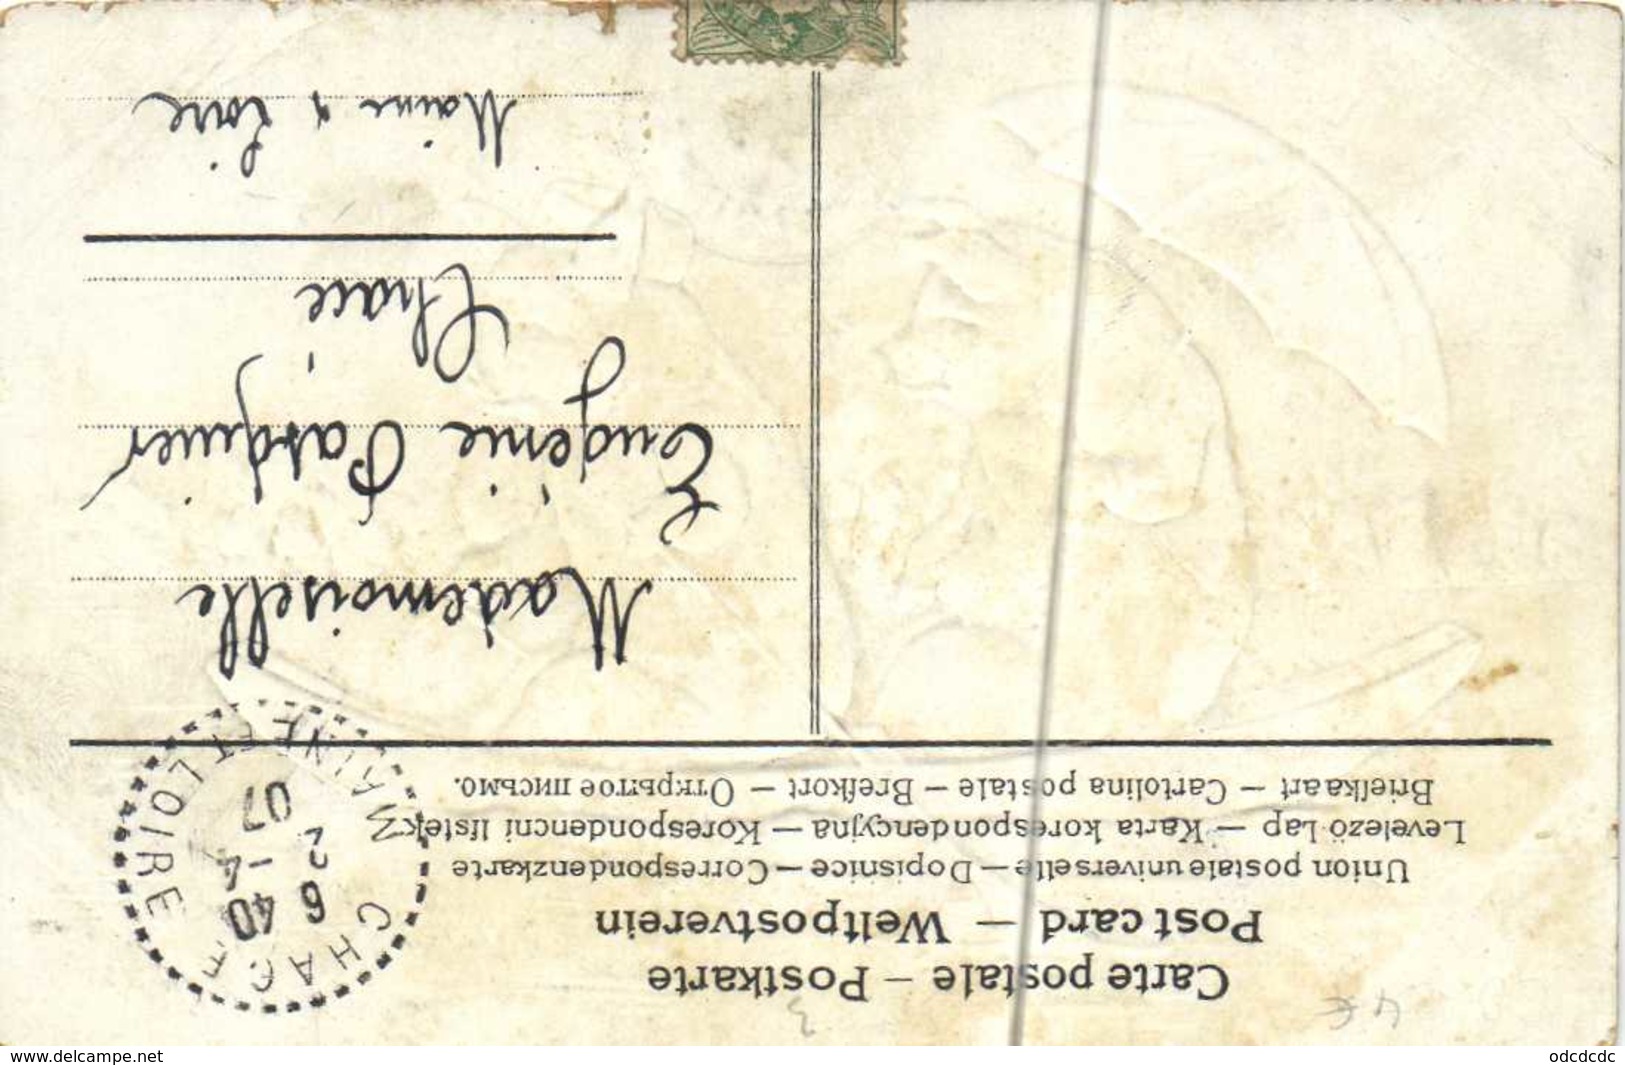 Carte postale — Postkarte
Post card — Weltpostverein
Union postale universelle — Dopisnice — Correspondenzkarte
Levelező Lap — Karta korespondencyjna — Korespondencni lístek
Briefkaart — Cartolina postale — Brefkort — Открытое письмо.
CHACÉ
6 40
2 -4
07
MAINE ET LOIRE
Mademoiselle
Eugénie Pasquier
à Chacé
Maine & Loire
www.delcampe.net
odcdcdc